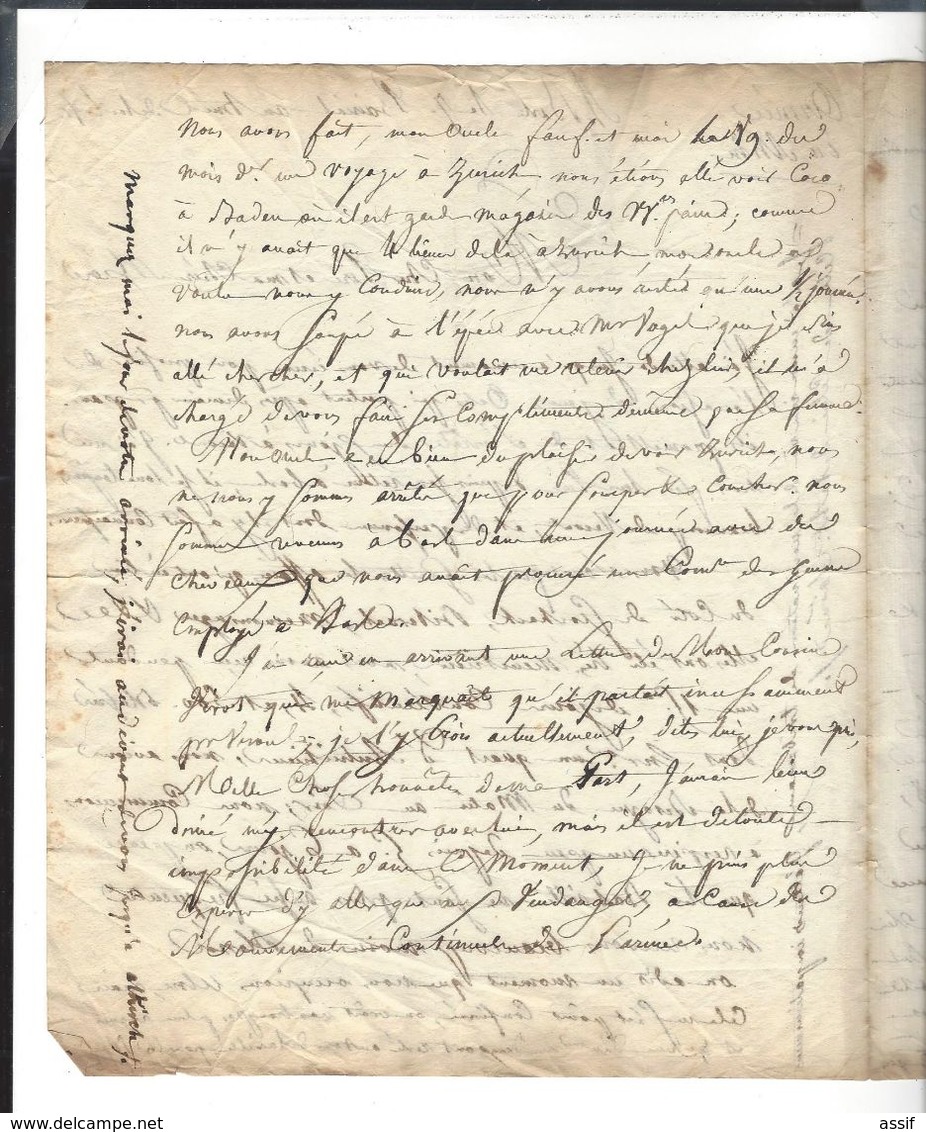 nous avons fait, mon oncle et moi le 19 du
mois dr. un voyage à Zurich nous étions allé voir Coco
à Baden où il est garde magasin des ; comme
il n'y avait que 4 lieues delà à Zurich mon oncle a
voulu nous y conduire, nous n'y avons resté qu'une 1/2 journée.
nous avons soupé à l'épée avec Mr Vogel que je suis
allé chercher, et qui voulait me retenir chez lui, il m'a
chargé de vous faire ses compliments de même que sa femme.
Mon oncle a eu bien du plaisir de voir Zurich, nous
ne nous y sommes arrêté que pour souper & coucher. nous
sommes revenus a basle dans une journée avec des
chevaux que nous avait procuré un Comre. des guerres
employé à Baden.
J'ai reçu en arrivant une lettre de Mon Cousin
qui me marquait qu'il partait incessamment
pr je l'y crois actuellement, dites lui, je vous prie,
Mille choses honnêtes de ma Part, J'aurais bien
désiré m'y rencontrer avec lui, mais il est de toute
impossibilité dans ce Moment, Je ne puis plus
espérer d'y aller que aux Vendanges, a cause des
Mouvements Continuels de l'armée.
Marquez moi le jour de votre arrivée, j'irais au devant de vous jusqu'a altkirch
assif